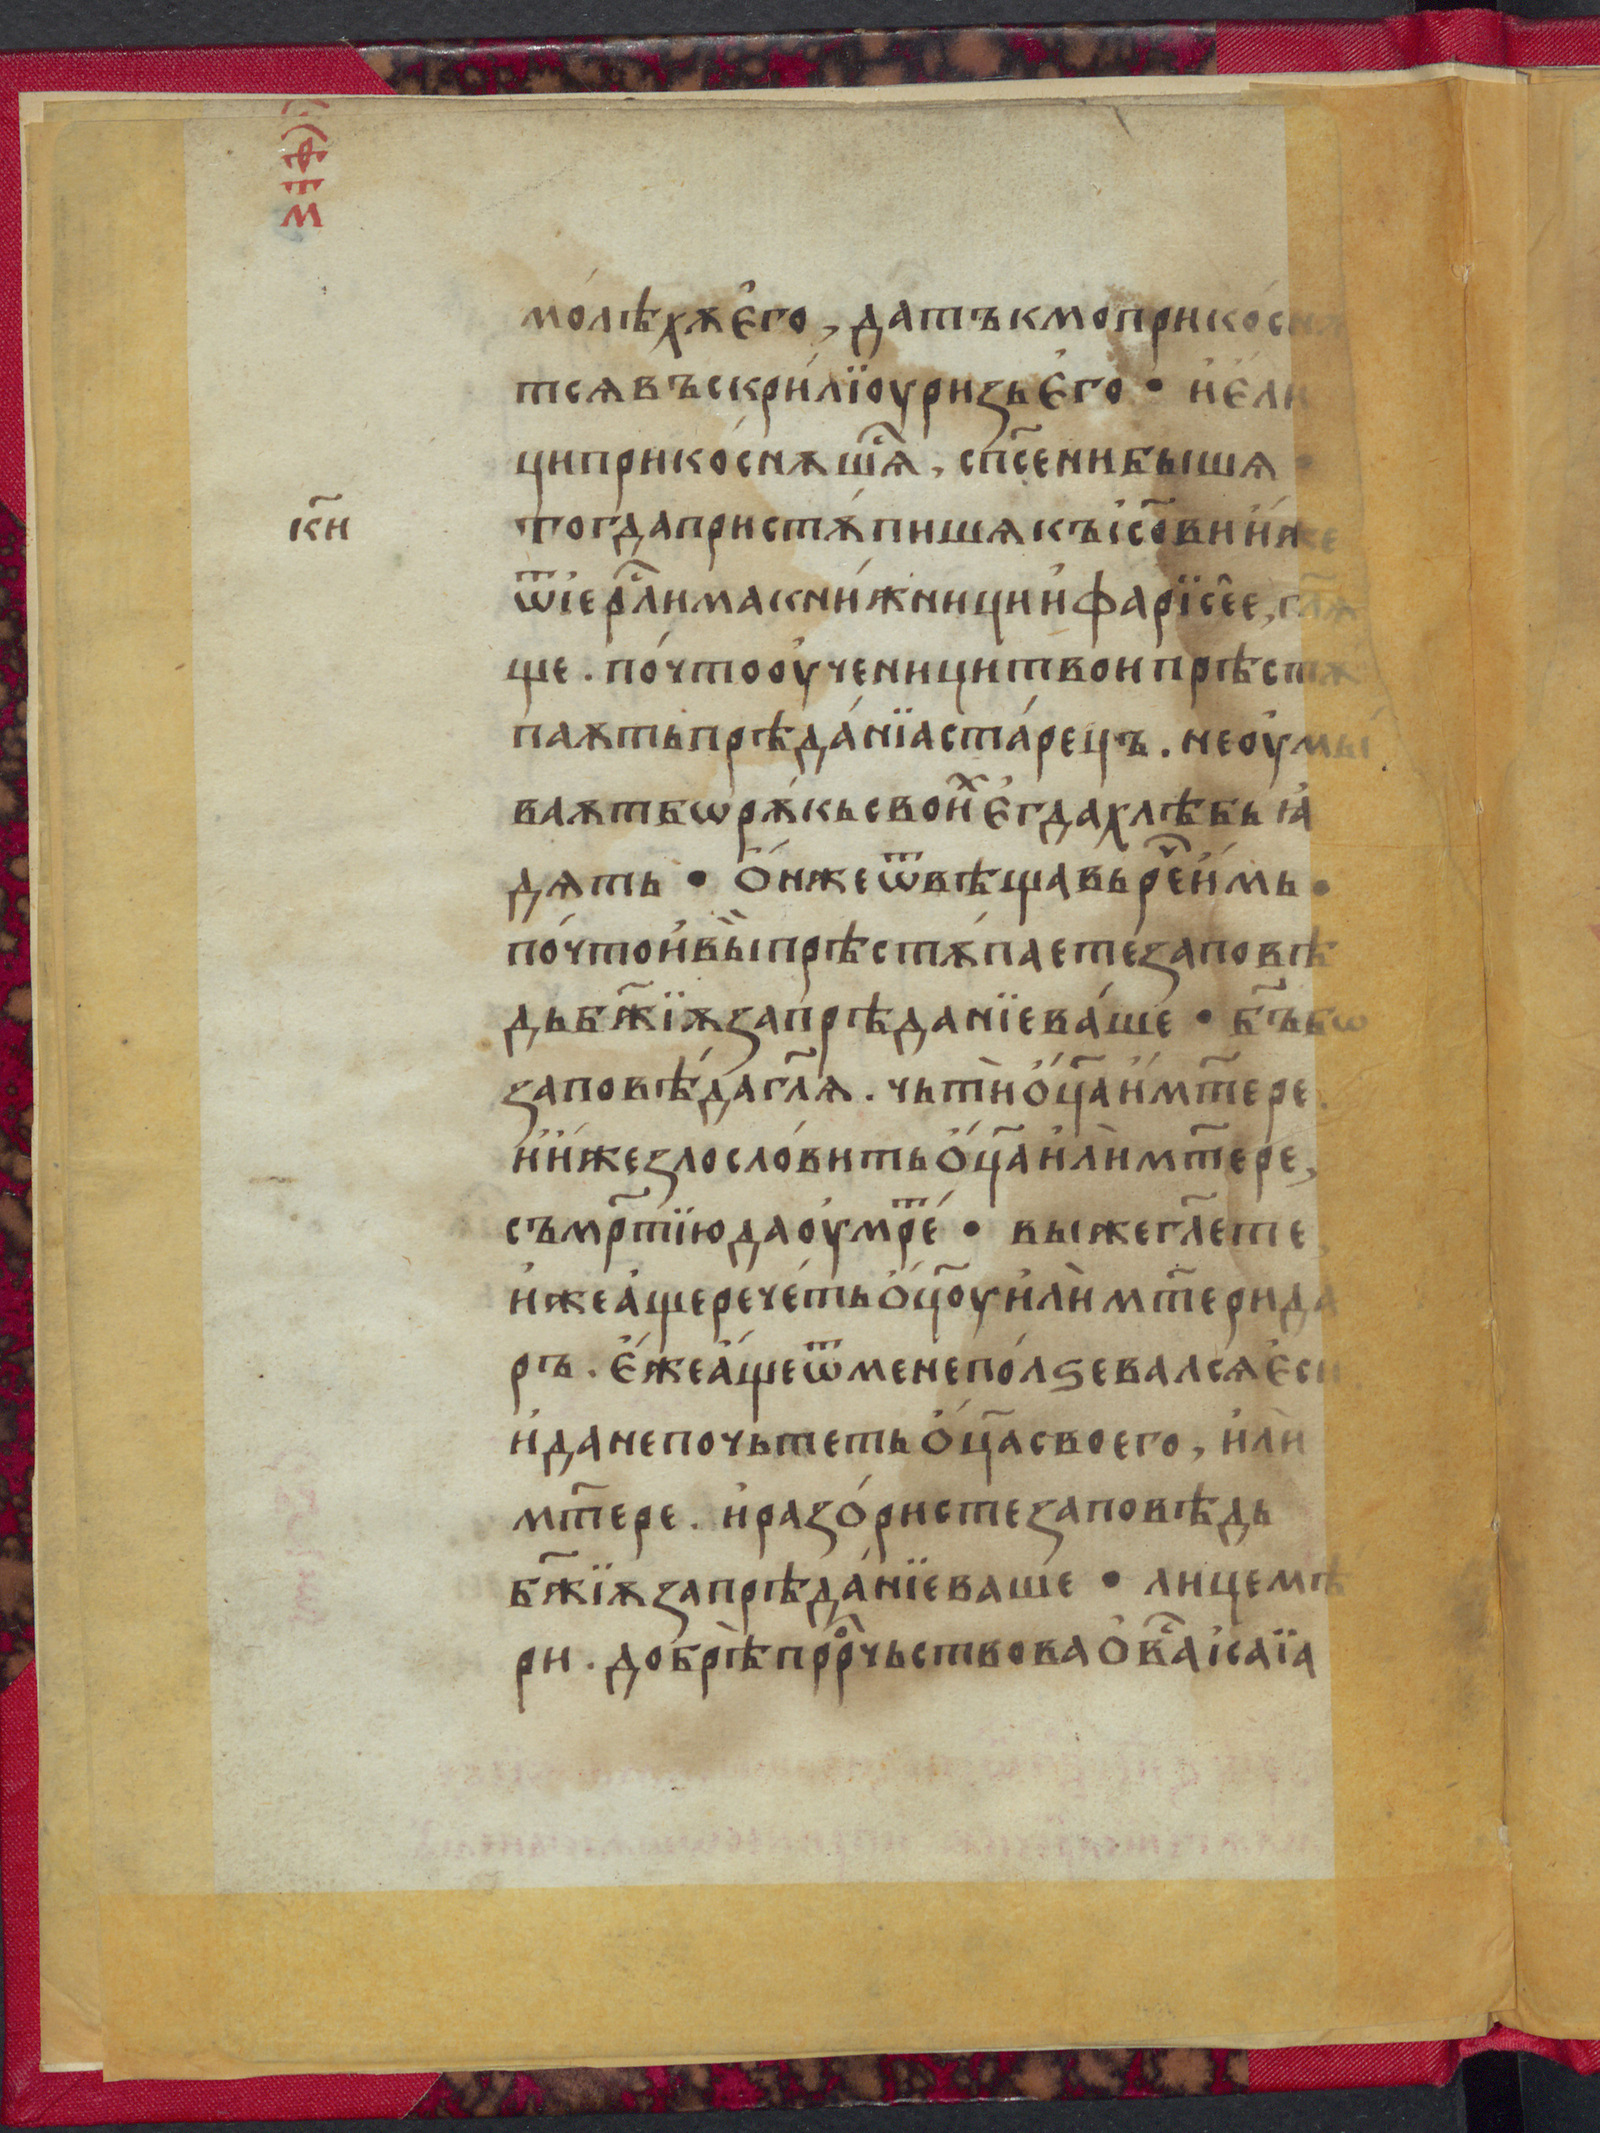 мо́лѣхѫ є҆го, да тъкмо прико́снѫ
тсѧ въскри́лїоу ризы є҆го • и҆ є҆ли
ци прикоснѫшѧ, сп҃сени бышѧ •
тогда пристѫ́пишѧ къ і҆с҃ови и҆́же
ѿ і҆ерⷭ҇лима кни́жници и҆ фарїсе́е, гл҃ѫ
ще. по́что оу҆ченици твои прѣстѫ
паѫть прѣда́нїа ста́рець. не оу҆мы
ваѫт бѡ рѫ́кы своиⷯ є҆гда хлѣбы ꙗ҆
дѧть • ѻ҆́н же ѿвѣщавь реⷱ҇ и҆́мь •
по́что и҆ вы̀ прѣстѫпаете́ заповѣ
дь бж҃їѫ за прѣданїе ва́ше • бг҃ъ бѡ
заповѣ́да гл҃ѧ. чьтѝ ѻ҆ц҃а и҆ мт҃ере.
и҆ и҆́же злосло́вить ѻ҆ц҃а и҆лѝ мт҃ере,
съмр҃тїю да оу҆мреⷮ • вы же гл҃ете,
и҆же а҆ще рече́ть ѻ҆ц҃оу и҆лѝ мт҃ери да
ръ. є҆́же а҆́ще ѿ мене по́лѕевалсѧ є҆си
и҆ да не почьтеть ѻ҆ц҃а своего, и҆лѝ
мт҃ере. и҆ разо́ристе заповѣдь
бж҃їѫ за прѣда́нїе ваше • лицемѣ
ри. добрѣ̀ прⷪ҇рчьствова ѻ҆ ваⷭ҇ і҆саїа
к҃и